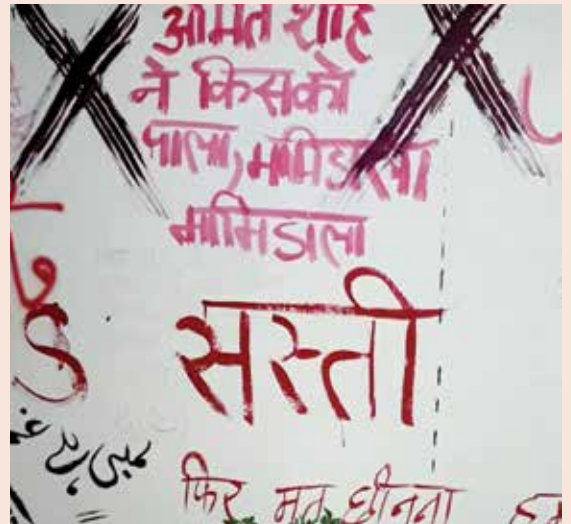 अमित शाह
ने किसको
पाला, मामिडाला
मामिडाला
S
सस्ती
फिर मत छीनना